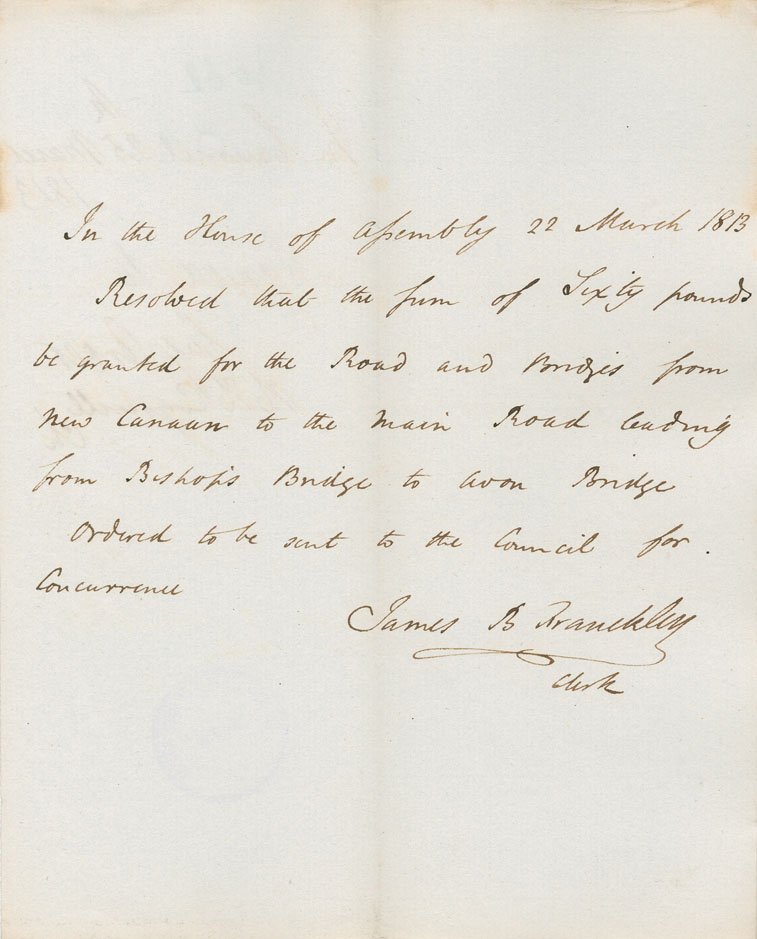 In the House of Assembly 22 March 1813
Resolved that the sum of Sixty pounds
be granted for the Road and Bridges from
New Canaan to the main Road leading
from Bishop's Bridge to Avon Bridge
Ordered to be sent to the Council for
Concurrence
James B Franckley
Clerk